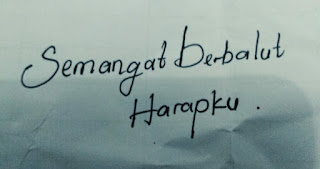 Semangat berbalut
Harapku.